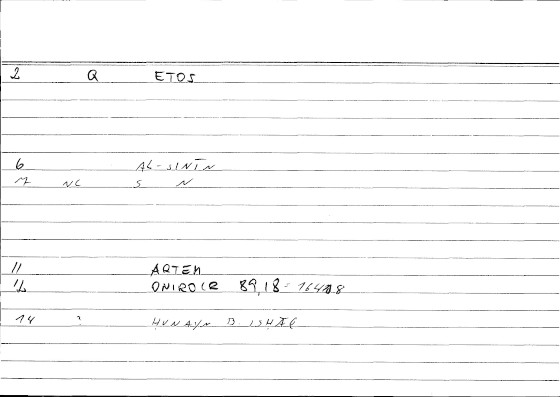 2 Q ETOS
6 AL-SINĪN
M NC S N
11 ARTEM
12 ONIROCR 89,18 = 164,18
14 : HUNAYN B. ISHĀQ